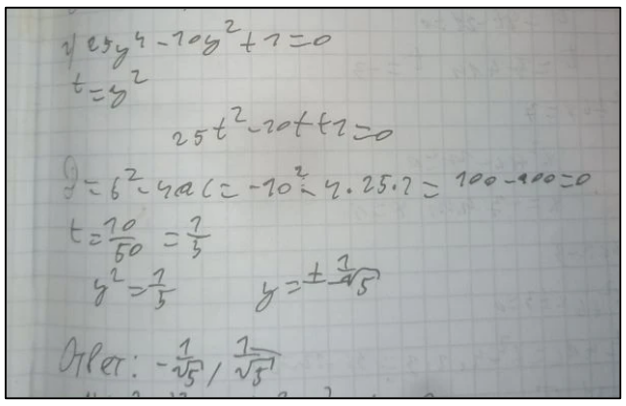 2) 25y⁴ - 10y² + 1 = 0
t = y²
25t² - 10t + 1 = 0
D = b² - 4ac = -10² - 4·25·1 = 100 - 100 = 0
t = 10/50 = 1/5
y² = 1/5 y = ± 1/√5
Ответ: -1/√5, 1/√5